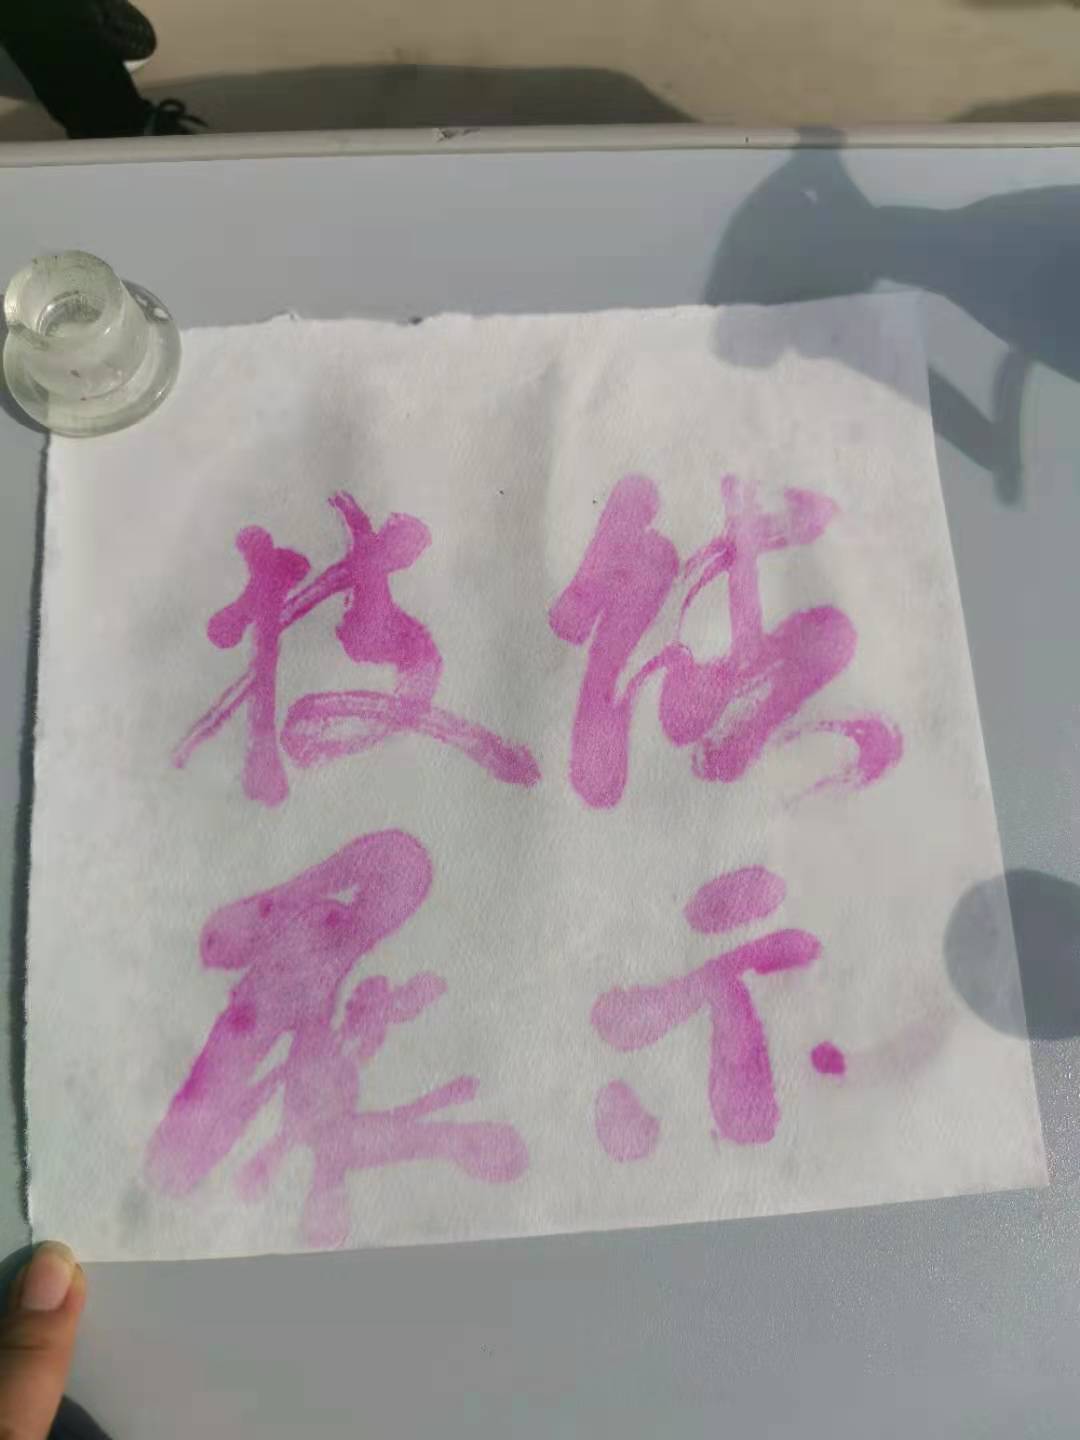 技能
展示